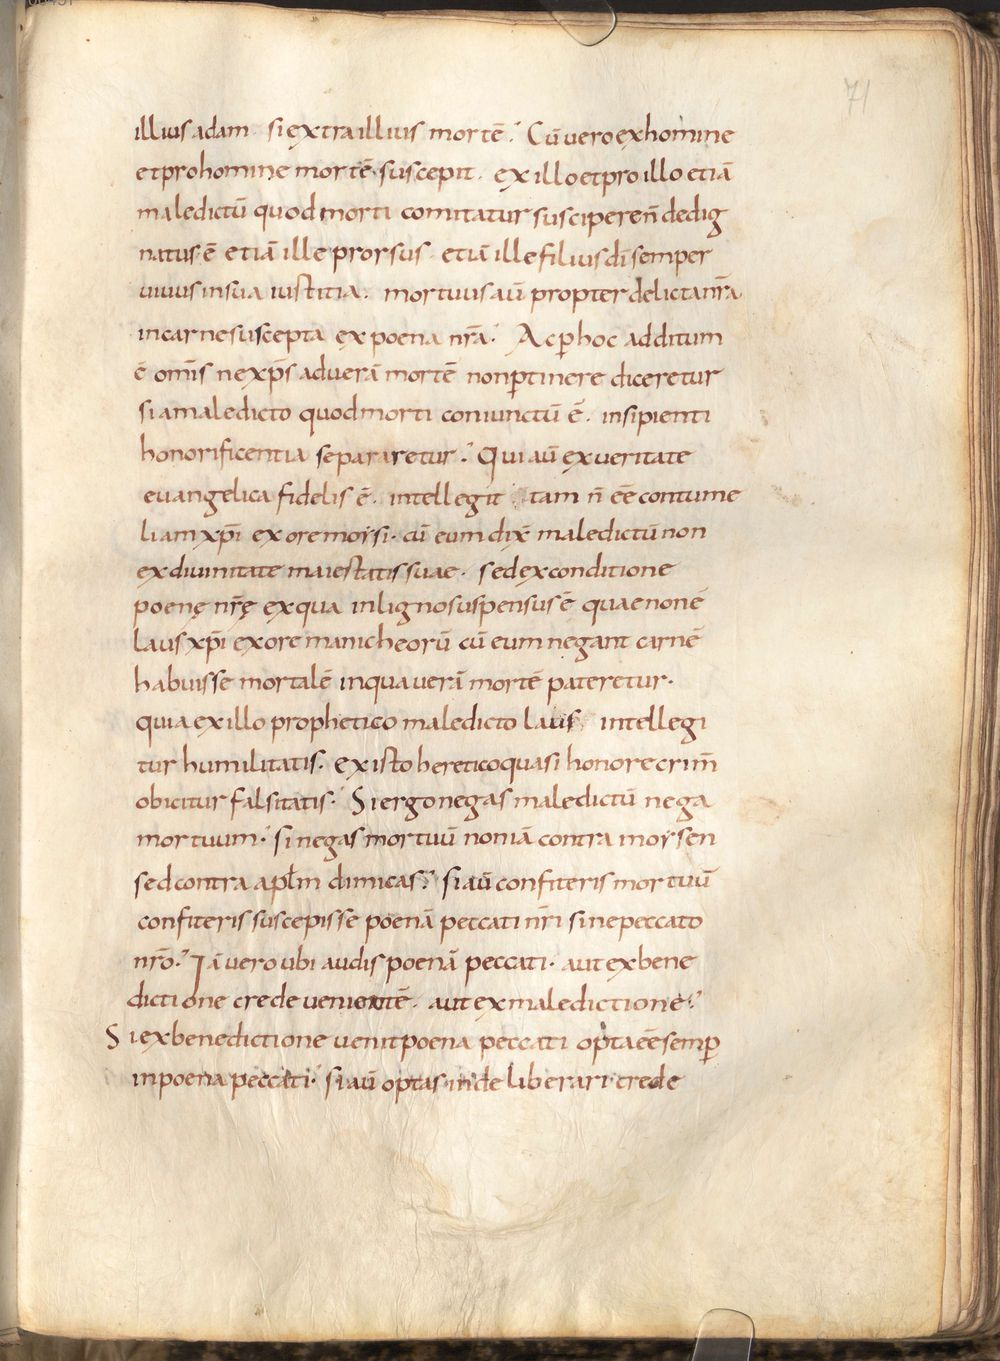 71
illius adam. si extra illius mortē. Cū vero ex homine
et pro homine mortē suscepit. ex illo et pro illo etiā
maledictū quod morti comitatur suscipere n̄ dedig
natus ē etiā ille prorsus. etiā ille filius dī semper
vivus in sua iustitia. mortuus aū propter delicta nr̄a
in carne suscepta ex poena nr̄a. Ac p̱ hoc additum
ē om̄is ne xp̄s ad verā mortē non p̱tinere diceretur
si a maledicto quod morti coniunctū ē. insipienti
honorificentia separaretur. Qui aū ex veritate
evangelica fidelis ē. intellegit tam n̄ eē contume
liam xp̄i ex ore moysi. cū eum dix̄ maledictū non
ex divinitate maiestatis suae. sed ex conditione
poenę nr̄ę ex qua in ligno suspensus ē quae non ē
laus xp̄i ex ore manicheorū cū eum negant carnē
habuisse mortalē in qua verā mortē pateretur.
quia ex illo prophetico maledicto laus intellegi
tur humilitatis. ex isto heretico quasi honore crim̄
obicitur falsitatis. Si ergo negas maledictū nega
mortuum. si negas mortuū non iā contra moysen
sed contra aplm̄ dimicas. si aū confiteris mortuū
confiteris suscepisse poenā peccati nr̄i sine peccato
nr̄o. Iā vero ubi audis poenā peccati. aut ex bene
dictione crede venientē. aut ex maledictione.
Si ex benedictione venit poena peccati opta eē semp̱
in poena peccati. si aū optas inde liberari crede